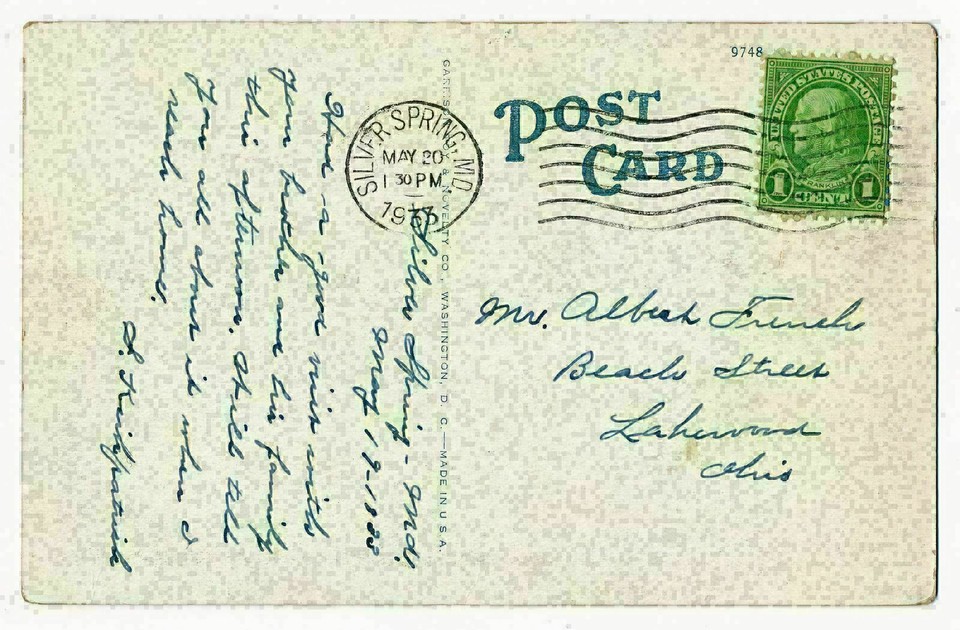 9748
POST
CARD
UNITED STATES POSTAGE
FRANKLIN
1 CENT 1
SILVER SPRING, MD.
MAY 20
1 30 PM
1933
Silver Spring - Md.
May 19-1933
Had a good visit with
your brother and his family
this afternoon. Will tell
you all about it when I
reach home.
S. Kirkpatrick
& NOVELTY CO., WASHINGTON, D. C.—MADE IN U S A.
Mr. Albert French
Beach Street
Lakewood
Ohio